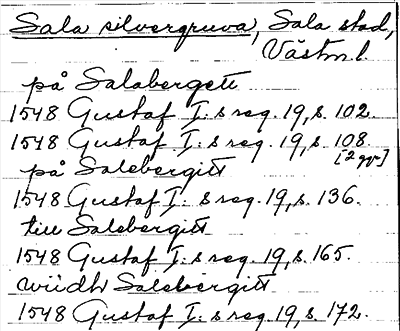 Sala silvergruva, Sala stad,
Västm.l.
på Salabergett
1548 Gustaf I:s reg. 19, s. 102.
1548 Gustaf I:s reg. 19, s. 108
[2 ggr]
på Salsbergitt
1548 Gustaf I:s reg. 19, s. 136.
till Salsbergitt
1548 Gustaf I:s reg. 19, s. 165.
widh Salsbergitt
1548 Gustaf I:s reg. 19, s. 172.